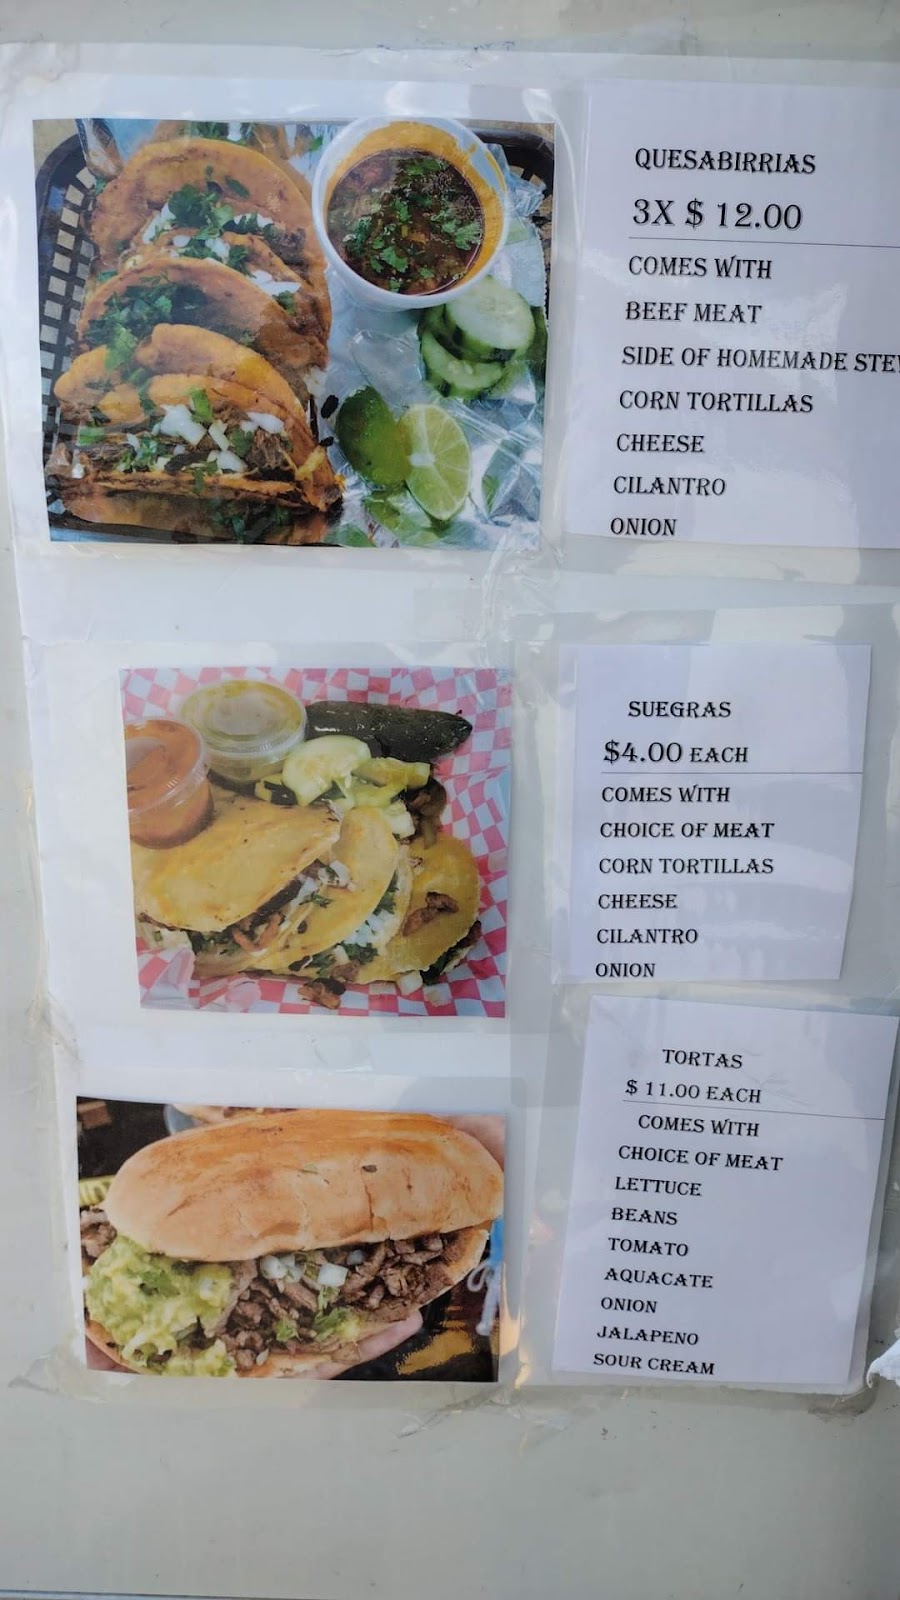 QUESABIRRIAS
3X $ 12.00
COMES WITH
BEEF MEAT
SIDE OF HOMEMADE
CORN TORTILLAS
CHEESE
CILANTRO
ONION
SUEGRAS
$4.00 EACH
COMES WITH
CHOICE OF MEAT
CORN TORTILLAS
CHEESE
CILANTRO
ONION
TORTAS
$ 11.00 EACH
COMES WITH
CHOICE OF MEAT
LETTUCE
BEANS
TOMATO
AQUACATE
ONION
JALAPENO
SOUR CREAM